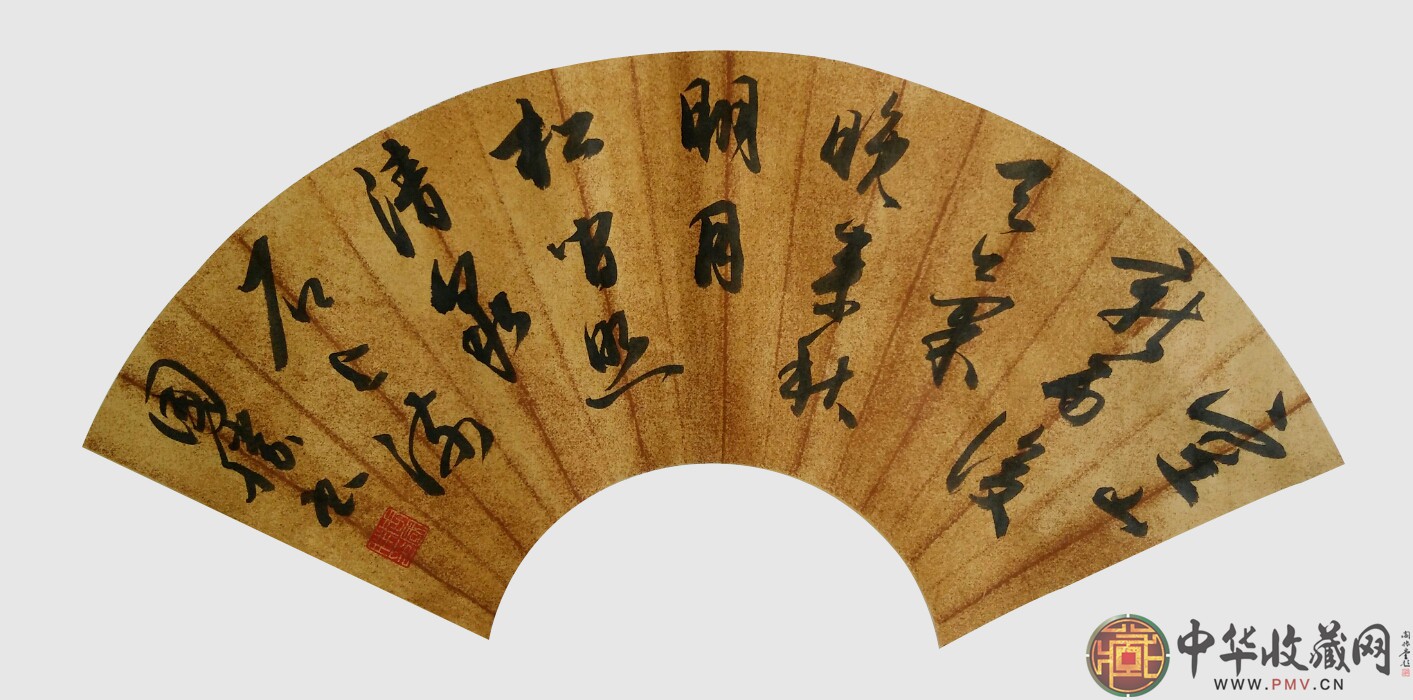 空山
新雨後
天氣
晚来秋
明月
松間照
清泉
石上流
國 书
中华收藏网
WWW.PMV.CN